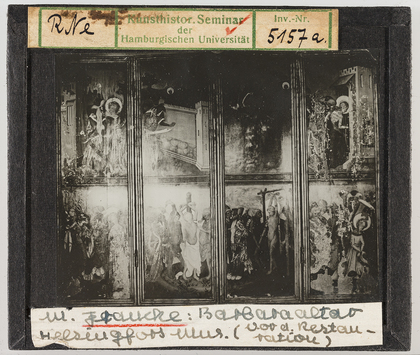 R Ne
Kunsthistor. Seminar
der
Hamburgischen Universität
Inv.-Nr.
5157a.
M. Francke: Barbaraaltar
Helsingfors Mus. (vor d. Restau-
ration)